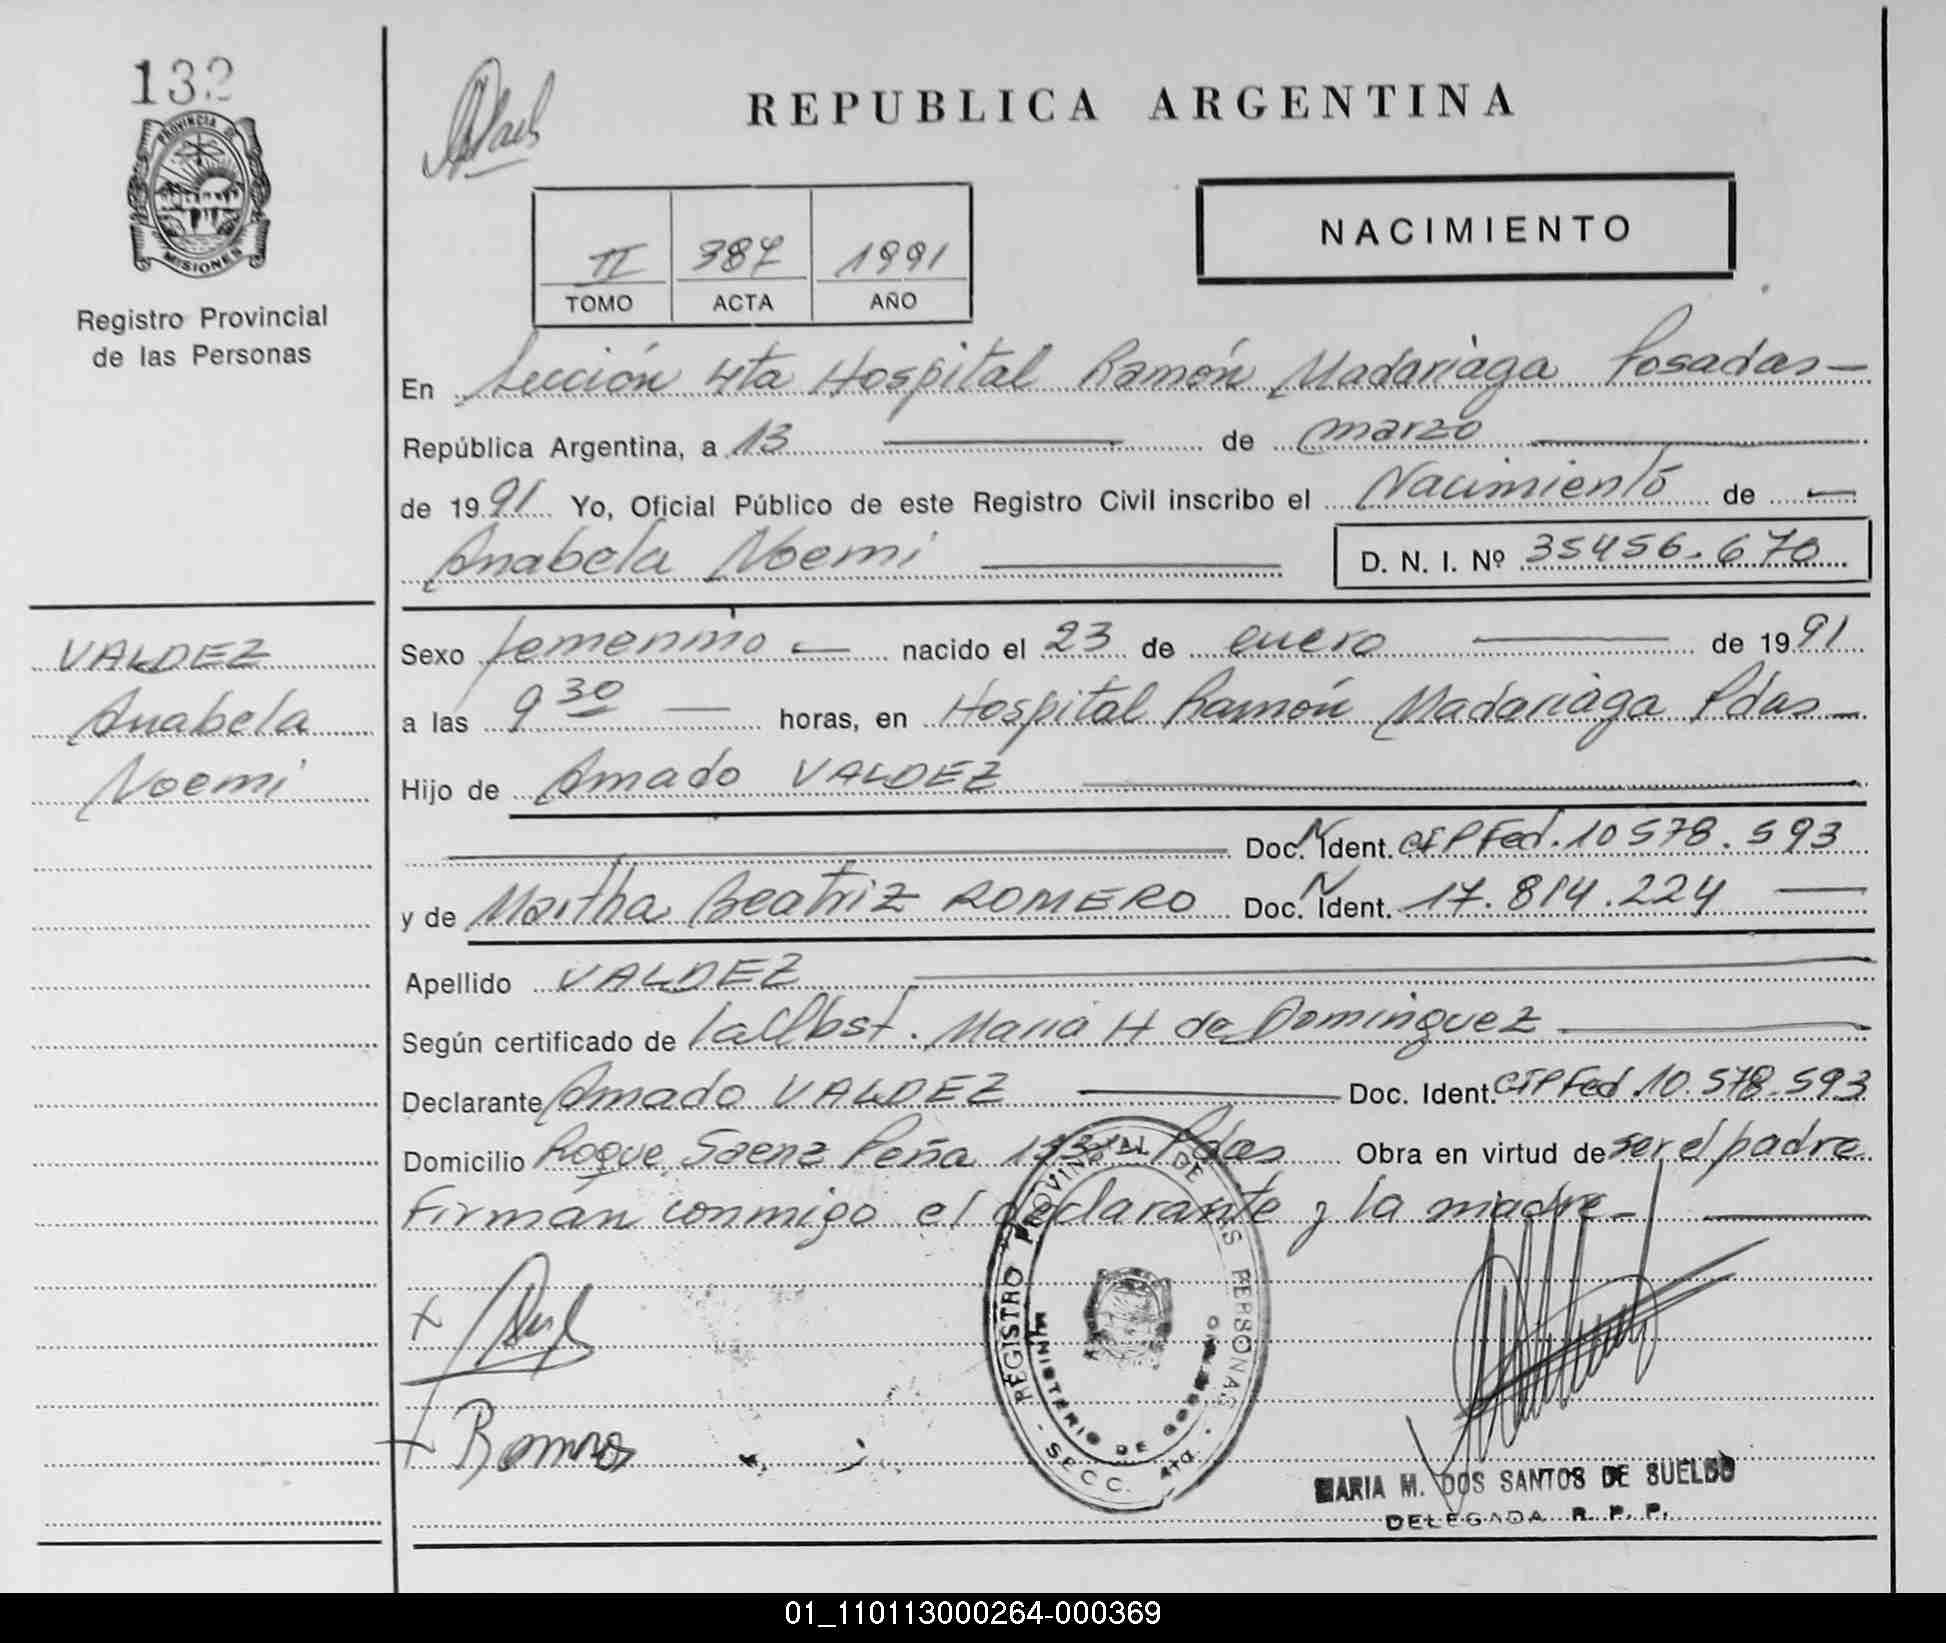 132
PROVINCIA DE
MISIONES
Registro Provincial
de las Personas
REPUBLICA ARGENTINA
NACIMIENTO
II 387 1991
TOMO ACTA AÑO
En Sección 4ta Hospital Ramón Madariaga Posadas—
República Argentina, a 13 de marzo
de 1991 Yo, Oficial Público de este Registro Civil inscribo el Nacimiento de —
Anabela Noemi D. N. I. Nº 35456.670
VALDEZ
Anabela
Noemi
Sexo femenino — nacido el 23 de enero de 1991
a las 9 30 — horas, en Hospital Ramón Madariaga Pdas—
Hijo de Amado VALDEZ
Doc. N Ident. CIPFed. 10578.593
y de Martha Beatriz ROMERO Doc. N Ident. 17.814.224
Apellido VALDEZ
Según certificado de la Obst. Maria H de Dominguez
Declarante Amado VALDEZ Doc. Ident. CIPFed.10.578.593
Domicilio Roque Saenz Peña Pdas Obra en virtud de ser el padre
Firman conmigo el declarante y la madre—
+
+ Romero
REGISTRO PROVINCIAL DE LAS PERSONAS
MINISTERIO DE GOBIERNO
- SECC. 4ta. -
MARIA M. DOS SANTOS DE SUELDO
DELEGADA R. P. P.
01_110113000264-000369